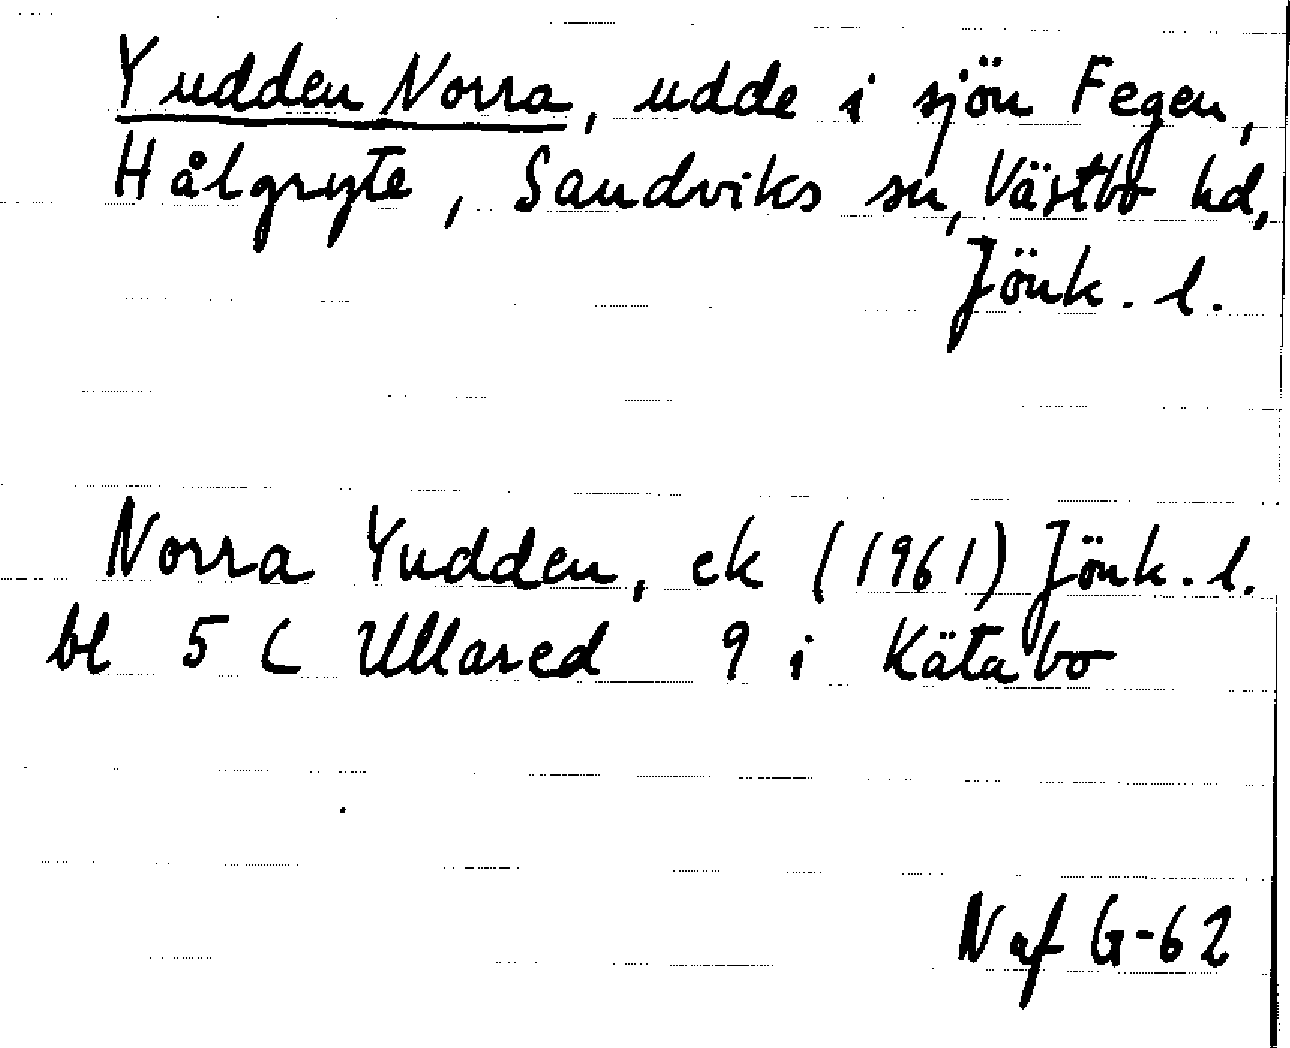 Yudden Norra, udde i sjön Fegen,
Hålgryte, Sandviks sn, Västbo hd,
Jönk. l.
Norra Yudden, ek (1961) Jönk. l.
bl 5 C Ullared 9 i Kätabo
N af G-62